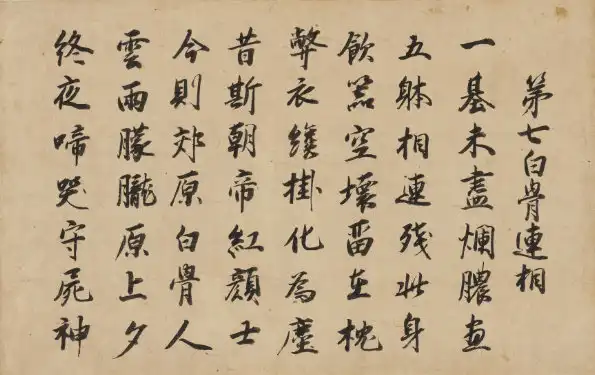 第七白骨連相
一基未盡爛膿畫
五躰相連残此身
飲器空壊留在枕
弊衣纔掛化為塵
昔斯朝帝紅顔士
今則郊原白骨人
雲雨朦朧原上夕
終夜啼哭守屍神